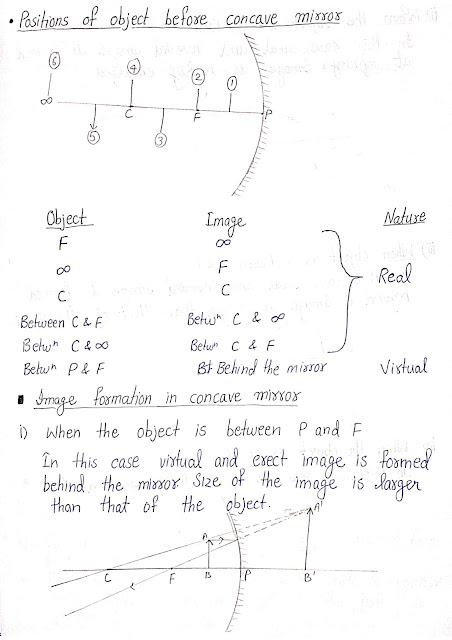 • Positions of object before concave mirror
⑥ ④ ② ①
∞ C F P
⑤ ③
Object Image Nature
F ∞
∞ F Real
C C
Between C & F Betwⁿ C & ∞
Betwⁿ C & ∞ Betwⁿ C & F
Betwⁿ P & F Bt Behind the mirror Virtual
Image formation in concave mirror
i) When the object is between P and F
In this case virtual and erect image is formed
behind the mirror Size of the image is larger
than that of the object.
A A'
C F B P B'